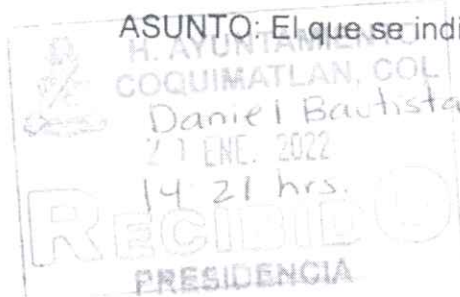 ASUNTO: El que se indi
H. AYUNTAMIENTO
COQUIMATLAN, COL
Daniel Bautista
21 ENE. 2022
14 21 hrs.
RECIBIDO
PRESIDENCIA